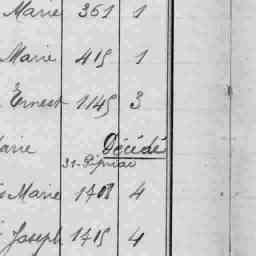 Marie 361 1
Marie 415 1
Ernest 1145 3
arie Décédé
Marie 1708 4
Joseph 1715 4